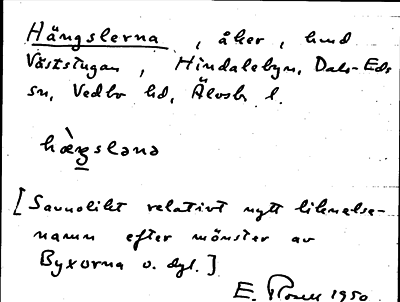 Hängslerna, åker, hmd
Väststugan, Hindalebyn, Dals-Eds
sn, Vedbo hd, Älvsb l.
hæ̀ŋslənə
[Sannolikt relativt nytt liknelse-
namn efter mönster av
Byxorna o. dyl.]
E. 1950